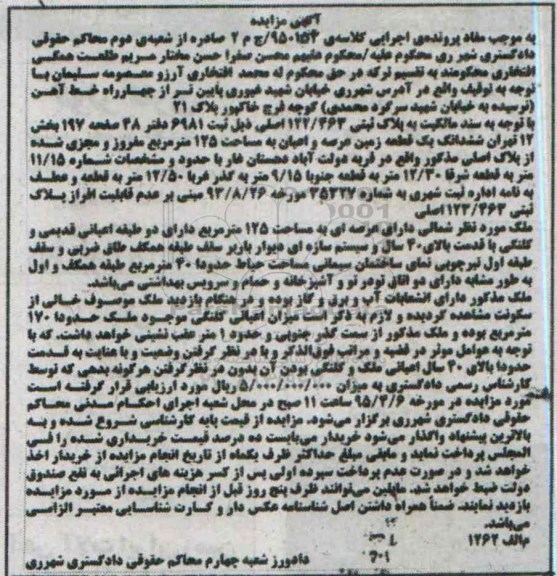 آگهی مزایده
به موجب مفاد پرونده‌ی اجرایی کلاسه‌ی ۹۵۰۱۵۴/ج م ۲ صادره از شعبه‌ی دوم محاکم حقوقی
دادگستری شهر ری محکوم علیه/محکوم علیهم محسن صغرا حسن مختار مریم طلعت همگی
افتخاری محکومند به تقسیم ترکه در حق محکوم له محمد افتخاری آرزو معصومه سلیمان با
توجه به توقیف واقع در آدرس شهرری خیابان شهید غیوری پایین تر از چهارراه خط آهن
(نرسیده به خیابان شهید سرگرد محمدی) کوچه فرج خاکپور پلاک ۲۱
با توجه به سند مالکیت به پلاک ثبتی ۱۲۲/۴۶۳ اصلی ذیل ثبت ۶۹۸۱ دفتر ۳۸ صفحه ۱۹۷ بخش
۱۲ تهران ششدانگ یک قطعه زمین عرصه و اعیان به مساحت ۱۲۵ مترمربع مفروز و مجزی شده
از پلاک اصلی مذکور واقع در قریه دولت آباد دهستان غار با حدود و مشخصات شماره ۱۱/۱۵
متر به قطعه شرقا ۱۲/۳۰ متر به قطعه جنوبا ۹/۱۵ متر به گذر غربا ۱۲/۵۰ متر به قطعه و عطف
به نامه اداره ثبت شهری به شماره ۳۵۳۲۷ مورخه ۹۳/۸/۲۶ مبنی بر عدم قابلیت افراز پلاک
ثبتی ۱۲۲/۴۶۳ اصلی
ملک مورد نظر شمالی دارای عرصه ای به مساحت ۱۲۵ مترمربع دارای دو طبقه اعیانی قدیمی و
کلنگی با قدمت بالای ۴۰ سال از سیستم سازه ای دیوار باربر سقف طبقه همکف طاق ضربی و سقف
طبقه اول تیرچوبی نمای ساختمان سیمانی مساحت حیاط حدودا ۴۰ مترمربع طبقه همکف و اول
به طور مشابه دارای دو اتاق تودرتو و آشپزخانه و حمام و سرویس بهداشتی می‌باشد.
ملک مذکور دارای انشعابات آب و برق و گاز بوده و در هنگام بازدید ملک موصوف خالی از
سکونت مشاهده گردیده و لازم به ذکر است میزان اعیانی کلنگی موجود ملک حدودا ۱۷۰
مترمربع بوده و ملک مذکور از سمت گذر جنوبی و حدود ۱ متر عقب نشینی خواهد داشت. که با
توجه به عوامل موثر در قضیه و مراتب فوق‌الذکر و با در نظر گرفتن وضعیت و با عنایت به قدمت
حدودا بالای ۴۰ سال اعیانی ملک و کلنگی بودن آن بدون در نظر گرفتن هرگونه بدهی که توسط
کارشناس رسمی دادگستری به میزان ریال مورد ارزیابی قرار گرفته است
مورد مزایده در مورخه ۹۵/۴/۶ ساعت ۱۱ صبح در محل شعبه اجرای احکام مدنی محاکم
حقوقی دادگستری شهرری برگزار می‌شود. مزایده از قیمت پایه کارشناسی شروع شده و به
بالاترین پیشنهاد واگذار می‌شود خریدار می‌بایست ده درصد قیمت خریداری شده را فی
المجلس پرداخت نماید و مابقی مبلغ حداکثر ظرف یکماه از تاریخ انجام مزایده از خریدار اخذ
خواهد شد و در صورت عدم پرداخت سپرده اولی پس از کسر هزینه های اجرائی به نفع صندوق
دولت ضبط خواهد شد. مایلین می‌توانند ظرف پنج روز قبل از انجام مزایده از مورد مزایده
بازدید نمایند. ضمناً همراه داشتن اصل شناسنامه عکس دار و کارت شناسایی معتبر الزامی
می‌باشد.
م‌الف ۱۲۶۲
دادورز شعبه چهارم محاکم حقوقی دادگستری شهرری